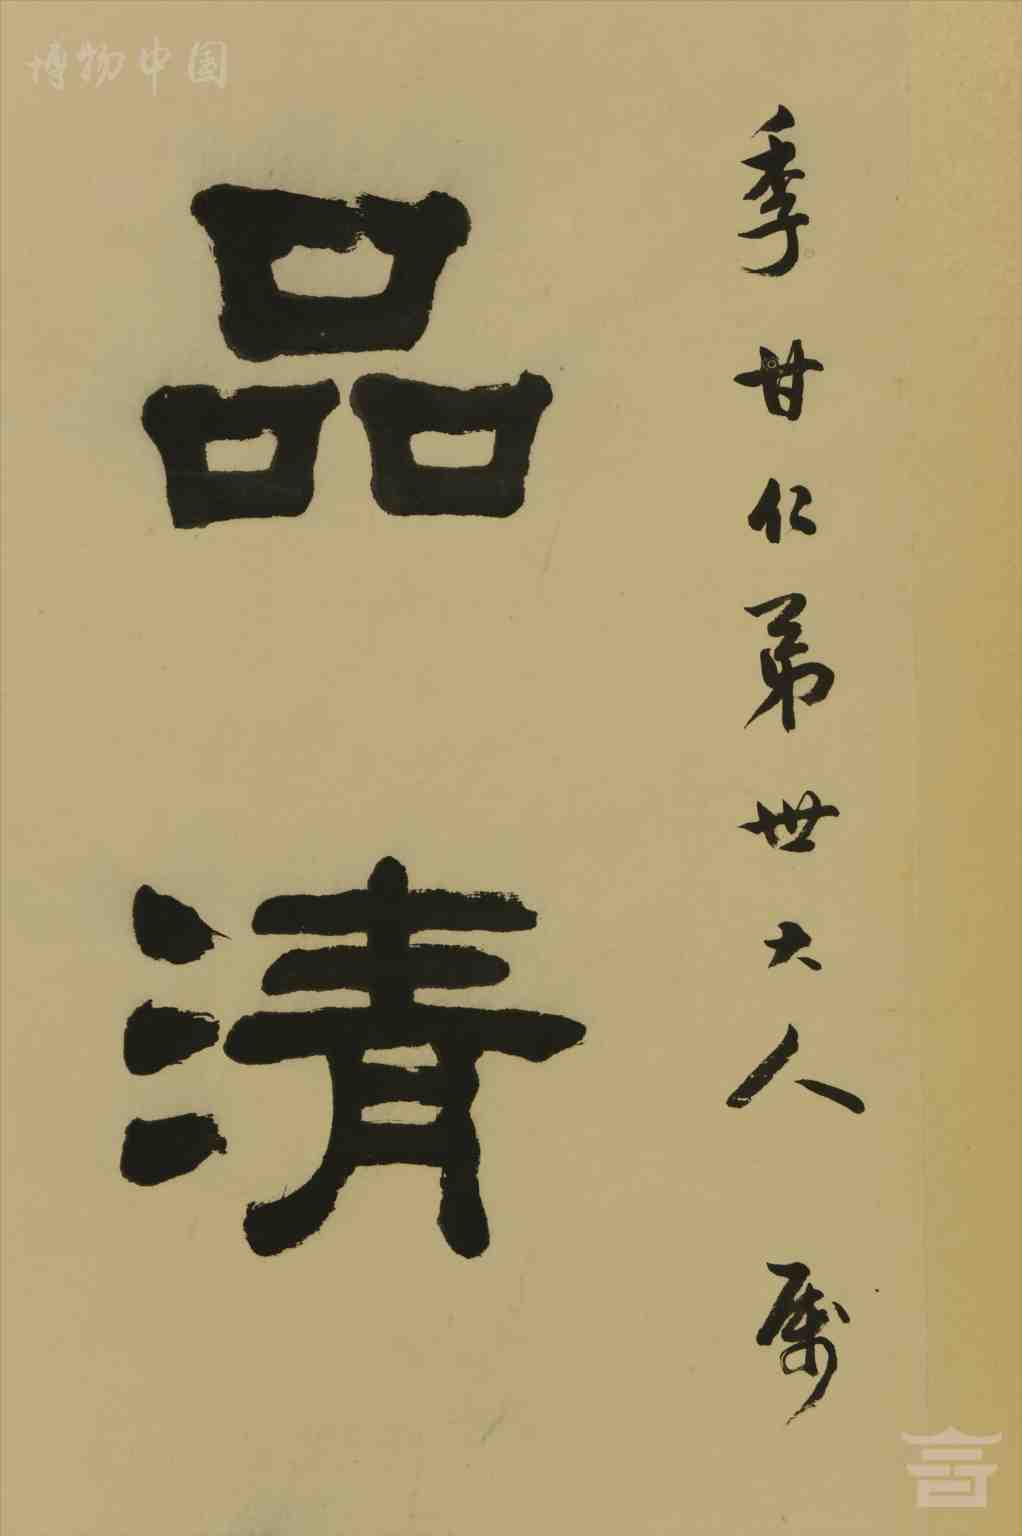 博物中国
季甘仁弟世大人 属
品清